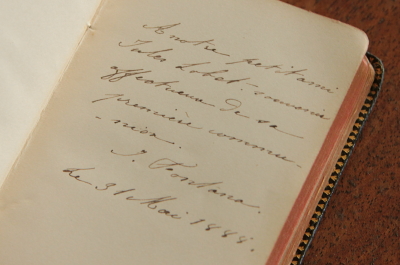 A notre petit ami
Jules Lobet. souvenir
affectueux de sa
première commu-
-nion.
J. Fontana.
de 31 Mai 1888.